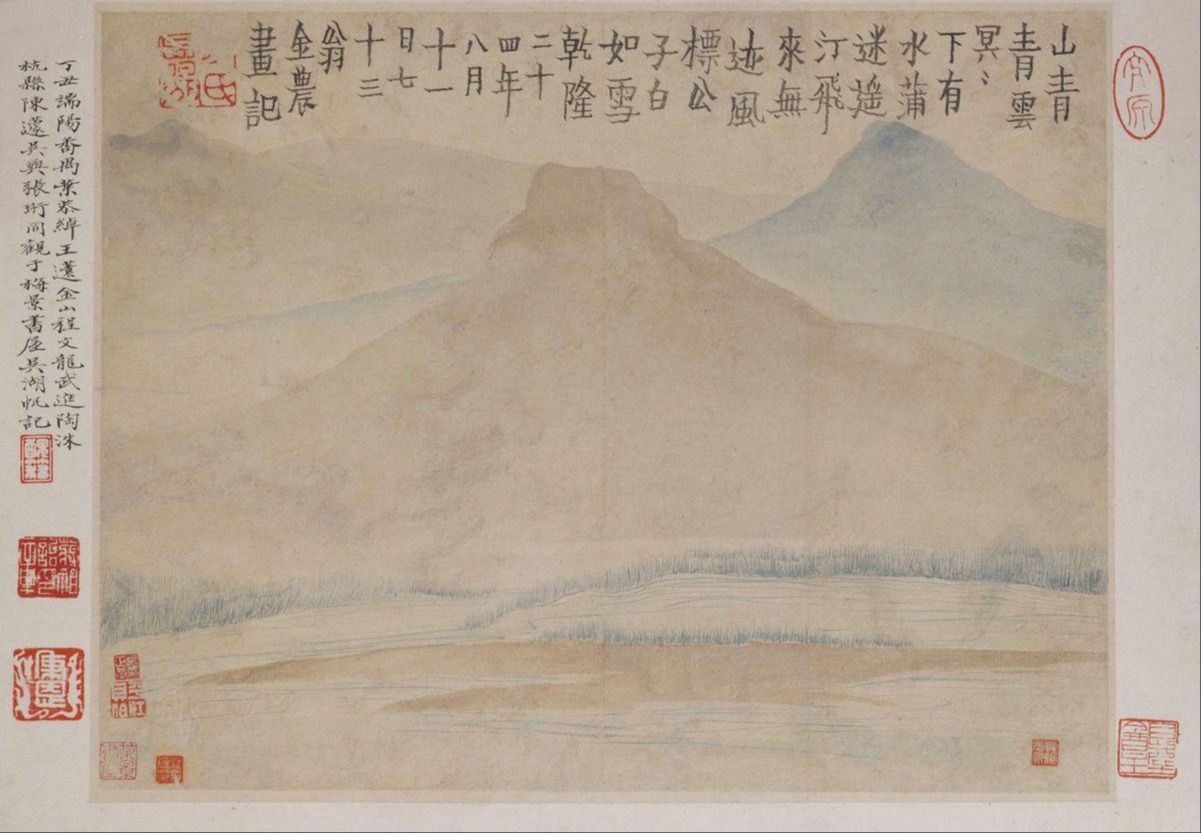 山青
青雲
冥〻
下有
水蒲
迷遙
汀飛
來無
迹風
標公
子白
如雪
乾隆
二十
四年
八月
十一
日七
十三
翁
金農
畫記
丁丑端陽番禺葉恭綽王薳金山程文龍武進陶洙
杭縣陳吳興張珩同觀于梅景書屋吳湖帆記